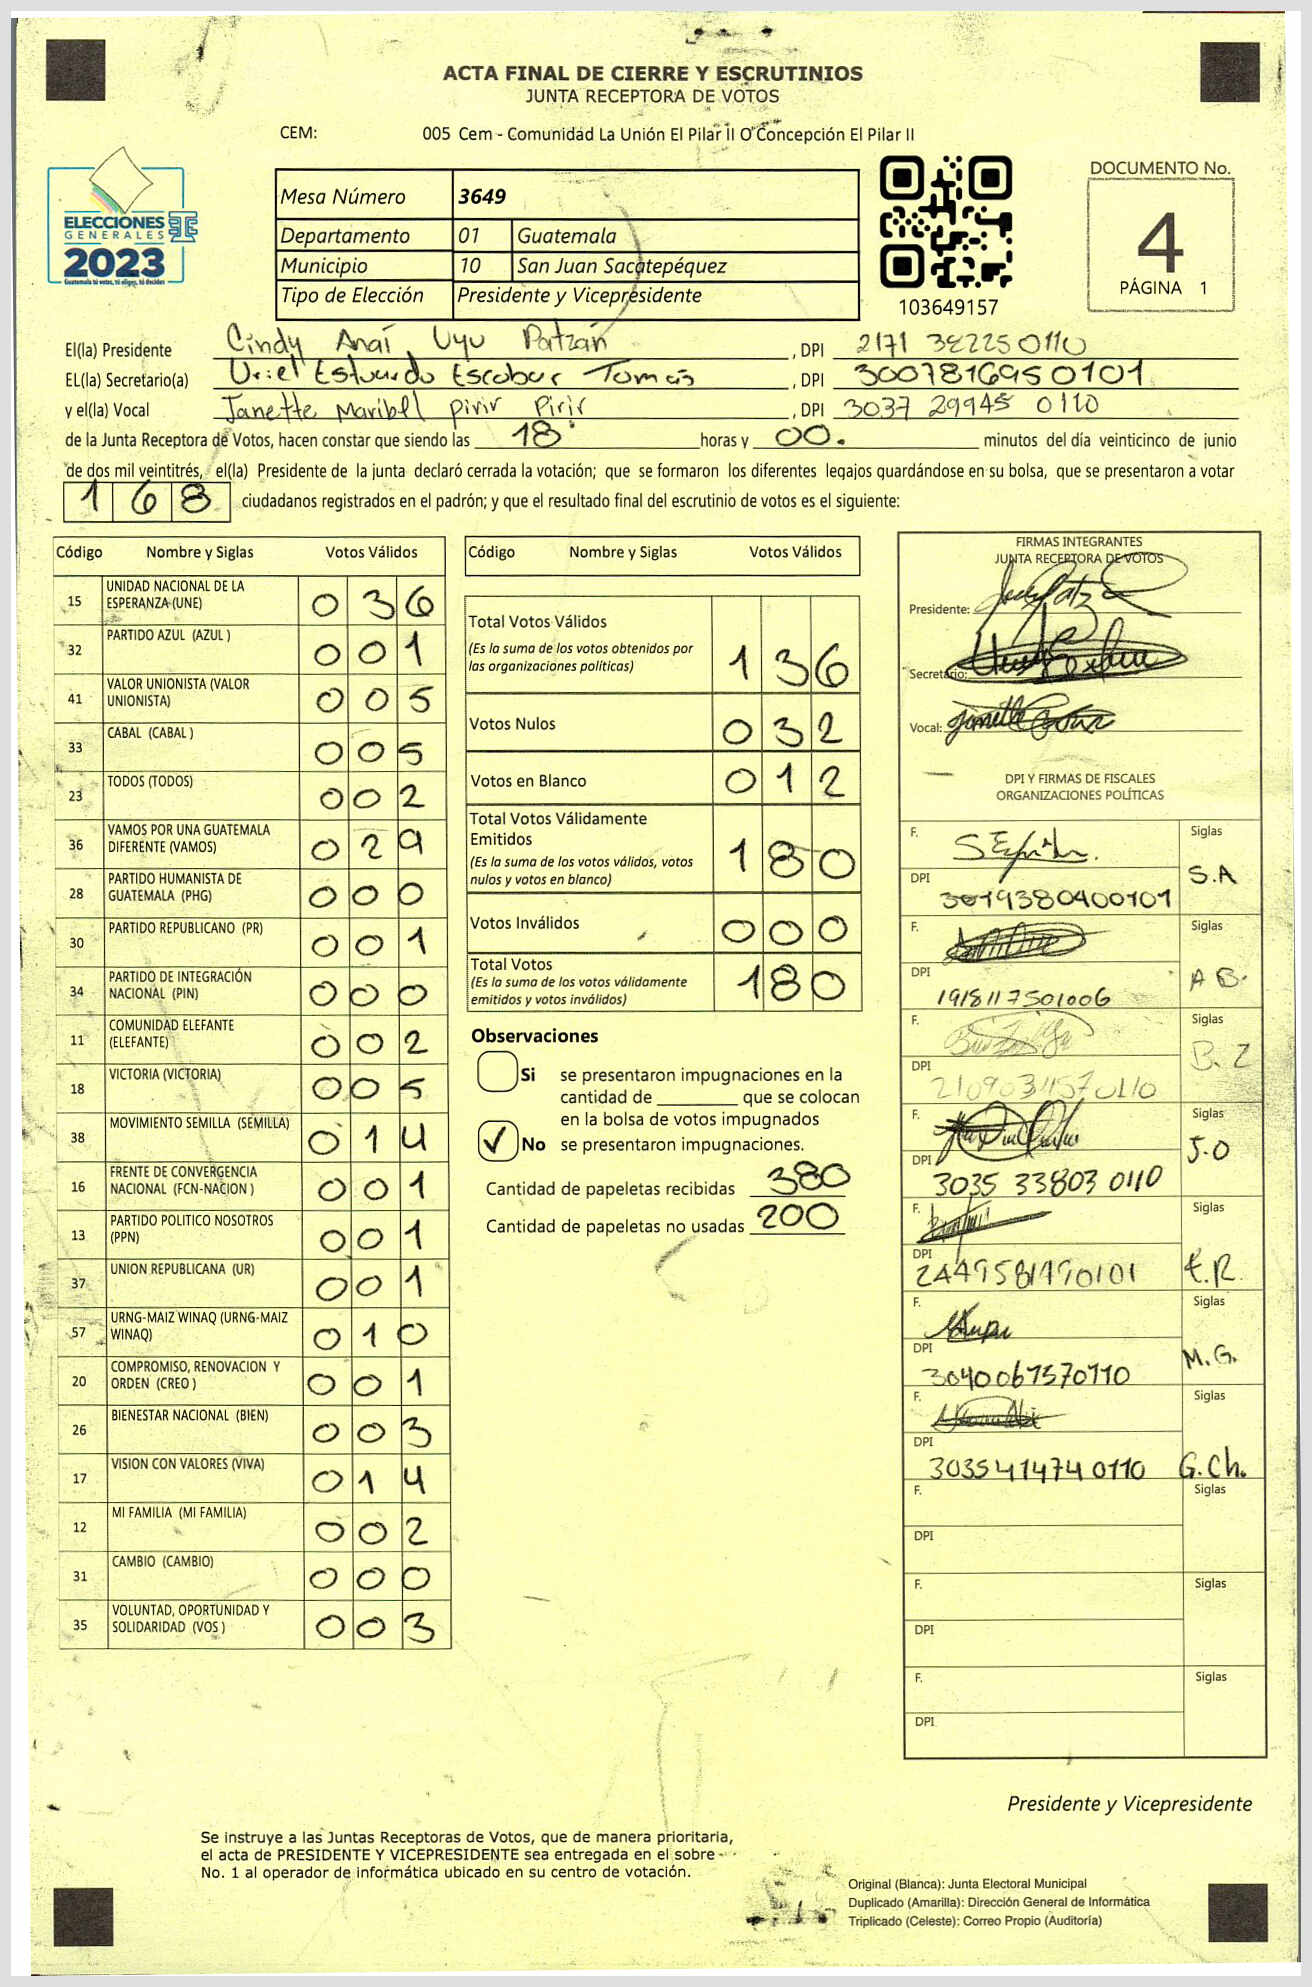 ACTA FINAL DE CIERRE Y ESCRUTINIOS
JUNTA RECEPTORA DE VOTOS
CEM: 005 Cem - Comunidad La Unión El Pilar II O Concepción El Pilar II
ELECCIONES
GENERALES
2023
Guatemala tú votas, tú eliges, tú decides
Mesa Número 3649
Departamento 01 Guatemala
Municipio 10 San Juan Sacatepéquez
Tipo de Elección Presidente y Vicepresidente
103649157
DOCUMENTO No.
4
PÁGINA 1
El(la) Presidente Cindy Anaí Uyu Patzán , DPI 2171 38225 0110
EL(la) Secretario(a) Uriel Estuardo Escobar Tomás , DPI 3007816950101
y el(la) Vocal Janette Maribel Pirir Pirir , DPI 3037 29945 0110
de la Junta Receptora de Votos, hacen constar que siendo las 18 horas y 00. minutos del día veinticinco de junio
de dos mil veintitrés, el(la) Presidente de la junta declaró cerrada la votación; que se formaron los diferentes legajos guardándose en su bolsa, que se presentaron a votar
168 ciudadanos registrados en el padrón; y que el resultado final del escrutinio de votos es el siguiente:
Código Nombre y Siglas Votos Válidos
15 UNIDAD NACIONAL DE LA ESPERANZA (UNE) 036
32 PARTIDO AZUL (AZUL ) 001
41 VALOR UNIONISTA (VALOR UNIONISTA) 005
33 CABAL (CABAL ) 005
23 TODOS (TODOS) 002
36 VAMOS POR UNA GUATEMALA DIFERENTE (VAMOS) 029
28 PARTIDO HUMANISTA DE GUATEMALA (PHG) 000
30 PARTIDO REPUBLICANO (PR) 001
34 PARTIDO DE INTEGRACIÓN NACIONAL (PIN) 000
11 COMUNIDAD ELEFANTE (ELEFANTE) 002
18 VICTORIA (VICTORIA) 005
38 MOVIMIENTO SEMILLA (SEMILLA) 014
16 FRENTE DE CONVERGENCIA NACIONAL (FCN-NACION ) 001
13 PARTIDO POLITICO NOSOTROS (PPN) 001
37 UNION REPUBLICANA (UR) 001
57 URNG-MAIZ WINAQ (URNG-MAIZ WINAQ) 010
20 COMPROMISO, RENOVACION Y ORDEN (CREO ) 001
26 BIENESTAR NACIONAL (BIEN) 003
17 VISION CON VALORES (VIVA) 014
12 MI FAMILIA (MI FAMILIA) 002
31 CAMBIO (CAMBIO) 000
35 VOLUNTAD, OPORTUNIDAD Y SOLIDARIDAD (VOS ) 003
Código Nombre y Siglas Votos Válidos
Total Votos Válidos 136
(Es la suma de los votos obtenidos por
las organizaciones políticas)
Votos Nulos 032
Votos en Blanco 012
Total Votos Válidamente
Emitidos 180
(Es la suma de los votos válidos, votos
nulos y votos en blanco)
Votos Inválidos 000
Total Votos 180
(Es la suma de los votos válidamente
emitidos y votos inválidos)
Observaciones
Si se presentaron impugnaciones en la
cantidad de ________ que se colocan
en la bolsa de votos impugnados
✓ No se presentaron impugnaciones.
Cantidad de papeletas recibidas 380
Cantidad de papeletas no usadas 200
FIRMAS INTEGRANTES
JUNTA RECEPTORA DE VOTOS
Presidente:
Secretario:
Vocal:
DPI Y FIRMAS DE FISCALES
ORGANIZACIONES POLÍTICAS
F. Siglas S.A
DPI 3019380400101
F. Siglas A B.
DPI 1918117501006
F. Siglas B. Z
DPI
F. Siglas J.O
DPI 3035 33803 0110
F. Siglas E.R.
DPI
F. Siglas M.G.
DPI 3040061570110
F. Siglas G.Ch.
DPI 3035414740110
F. Siglas
DPI
F. Siglas
DPI
F. Siglas
DPI
Presidente y Vicepresidente
Se instruye a las Juntas Receptoras de Votos, que de manera prioritaria,
el acta de PRESIDENTE Y VICEPRESIDENTE sea entregada en el sobre
No. 1 al operador de informática ubicado en su centro de votación.
Original (Blanca): Junta Electoral Municipal
Duplicado (Amarilla): Dirección General de Informática
Triplicado (Celeste): Correo Propio (Auditoría)